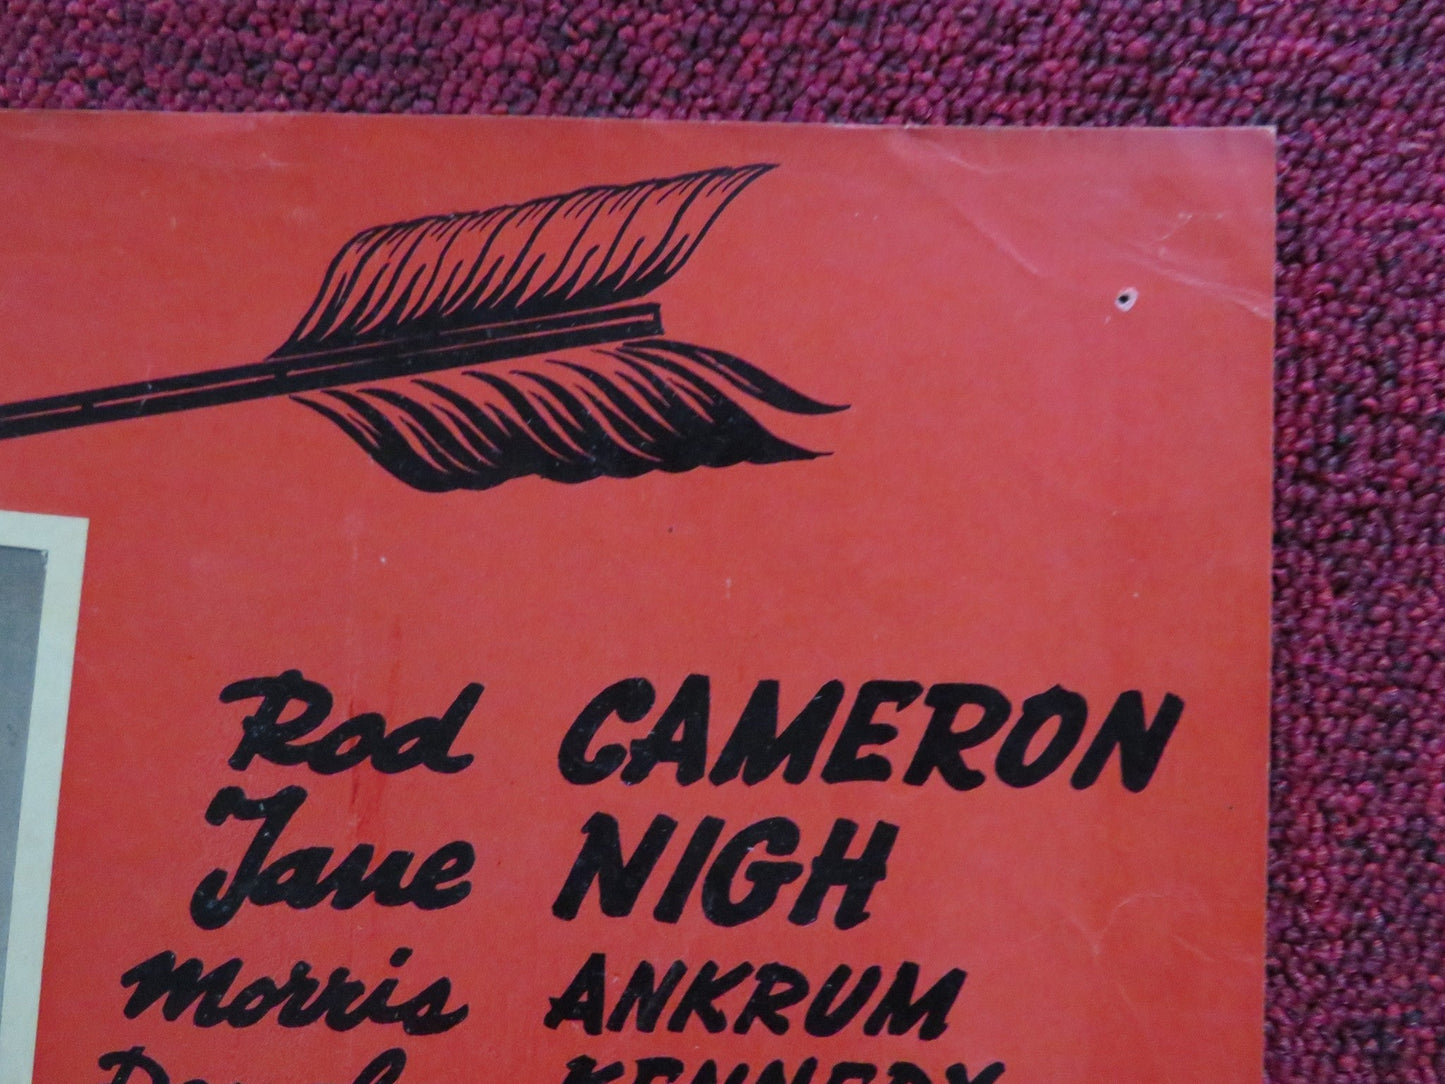 Rod CAMERON
Jane NIGH
Morris ANKRUM
KENNEDY